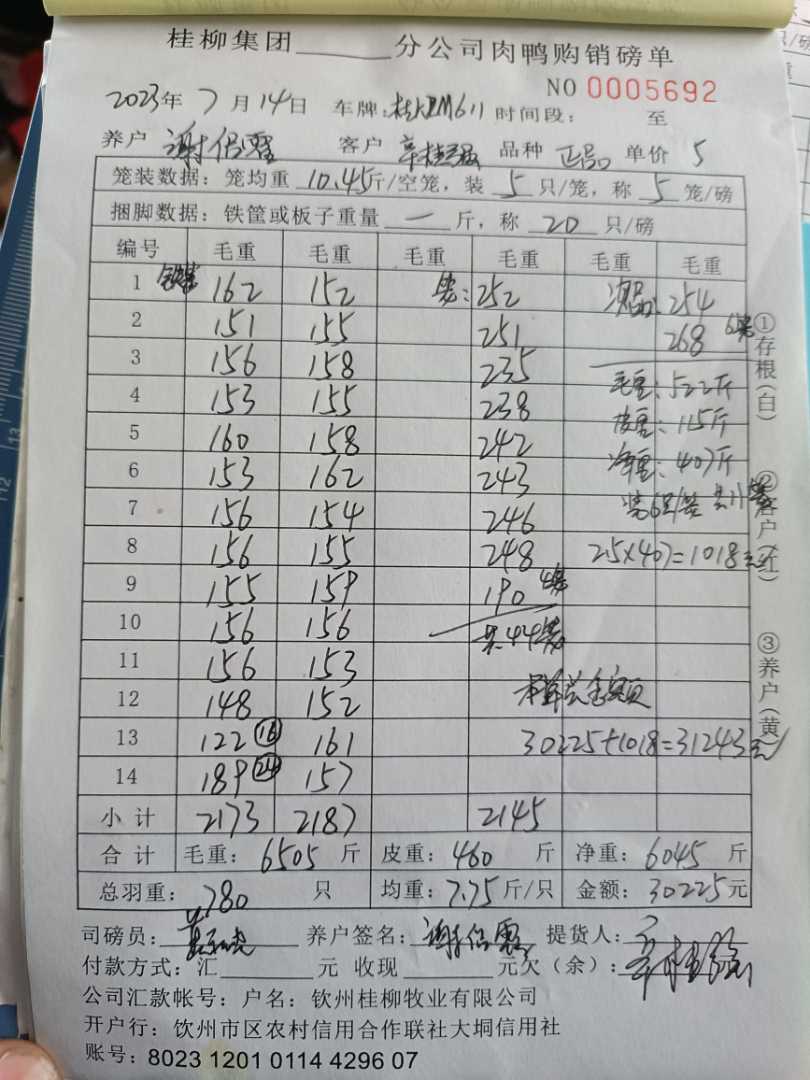 桂柳集团______分公司肉鸭购销磅单
NO 0005692
2023年 7月14日 车牌: M611 时间段: 至
养户 谢 客户 品种 正品 单价 5
笼装数据: 笼均重 10.45斤/空笼, 装 5 只/笼, 称 5 笼/磅
捆脚数据: 铁筐或板子重量 一 斤, 称 20 只/磅
编号 毛重 毛重 毛重 毛重 毛重 毛重
1 162 152 笼: 252 次品: 254
2 151 155 251 268 6笼
3 156 158 235 毛重: 522斤
4 153 155 238 皮重: 115斤
5 160 158 242 净重: 407斤
6 153 162 243 装6只/笼 共11笼
7 156 154 246
8 156 155 248 2.5×407=1018元
9 155 159 190 4笼
10 156 156 共44笼
11 156 153
12 148 152 本单总金额
13 122 ⑯ 161 30225+1018=31243元
14 189 ㉔ 157
小计 2173 2187 2145
合计 毛重: 6505 斤 皮重: 460 斤 净重: 6045 斤
总羽重: 780 只 均重: 7.75 斤/只 金额: 30225 元
①存根(白) ②客户(红) ③养户(黄)
司磅员: 养户签名: 谢 提货人:
付款方式: 汇______元 收现______元欠(余):
公司汇款帐号: 户名: 钦州桂柳牧业有限公司
开户行: 钦州市区农村信用合作联社大垌信用社
账号: 8023 1201 0114 4296 07